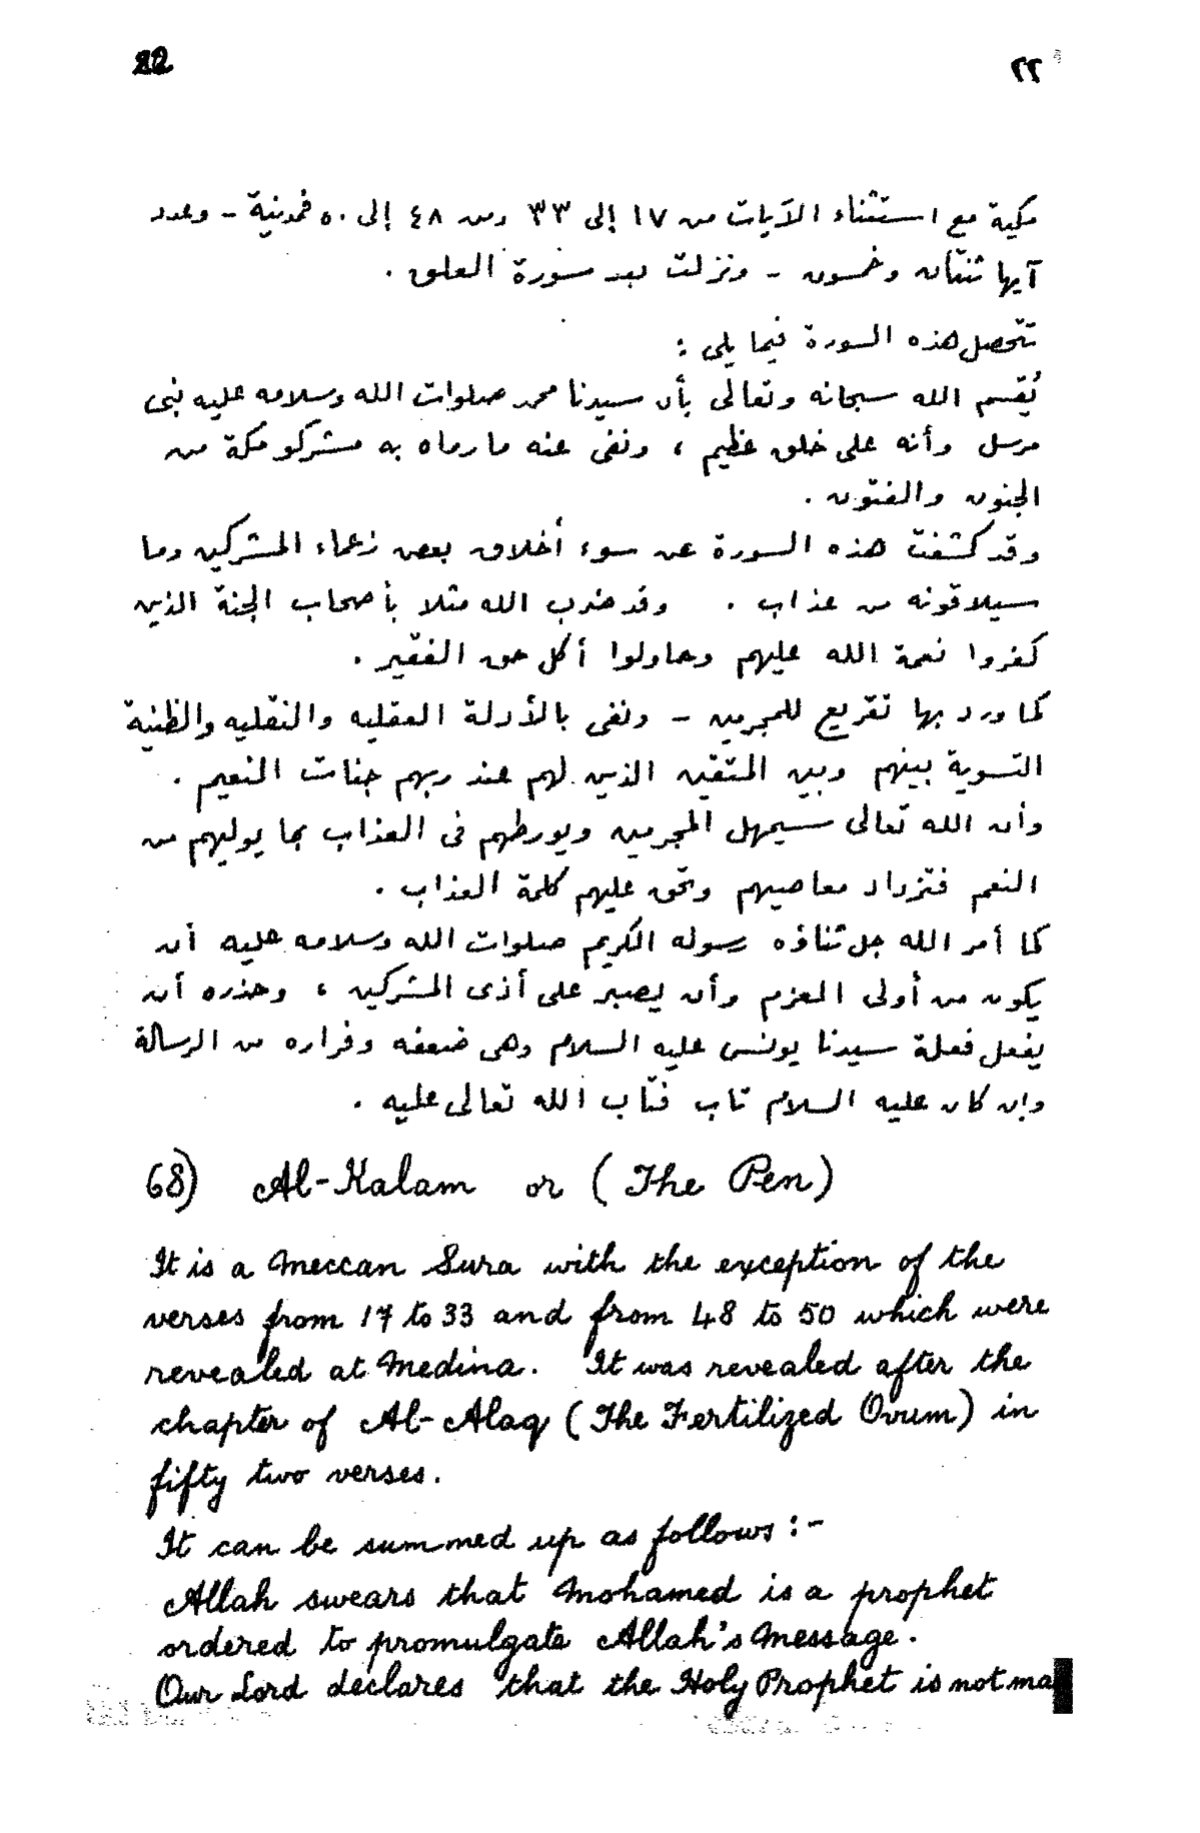 22
٢٢
مكية مع استثناء الآيات من ١٧ إلى ٣٣ ومن ٤٨ إلى ٥٠ فمدنية - وعدد
آيها ثنتان وخمسون - ونزلت بعد سورة العلق .
تتحصل هذه السورة فيما يلى :
يُقسم الله سبحانه وتعالى بأن سيدنا محمد صلوات الله وسلامه عليه نبى
مرسل وأنه على خلق عظيم ، ونفى عنه ما رماه به مشركو مكة من
الجنون والفتون .
وقد كشفت هذه السورة عن سوء أخلاق بعض زعماء المشركين وما
سيلاقونه من عذاب . وقد ضرب الله مثلا بأصحاب الجنة الذين
كفروا نعمة الله عليهم وحاولوا أكل حق الفقير .
كما ورد بها تقريع للمجرمين - ونفى بالأدلة العقليه والنقليه والظنية
التسوية بينهم وبين المتقين الذين لهم عند ربهم جنات النعيم .
وأن الله تعالى سيمهل المجرمين ويورطهم فى العذاب بما يوليهم من
النعم فتزداد معاصيهم وتحق عليهم كلمة العذاب .
كما أمر الله جل ثناؤه رسوله الكريم صلوات الله وسلامه عليه أن
يكون من أولى العزم وأن يصبر على أذى المشركين ، وحذره أن
يفعل فعلة سيدنا يونس عليه السلام وهى ضعفه وفراره من الرسالة
وإن كان عليه السلام تاب فتاب الله تعالى عليه .
68) Al-Kalam or (The Pen)
It is a Meccan Sura with the exception of the
verses from 17 to 33 and from 48 to 50 which were
revealed at Medina. It was revealed after the
chapter of Al-Alaq (The Fertilized Ovum) in
fifty two verses.
It can be summed up as follows :-
Allah swears that Mohamed is a prophet
ordered to promulgate Allah's Message.
Our Lord declares that the Holy Prophet is not ma